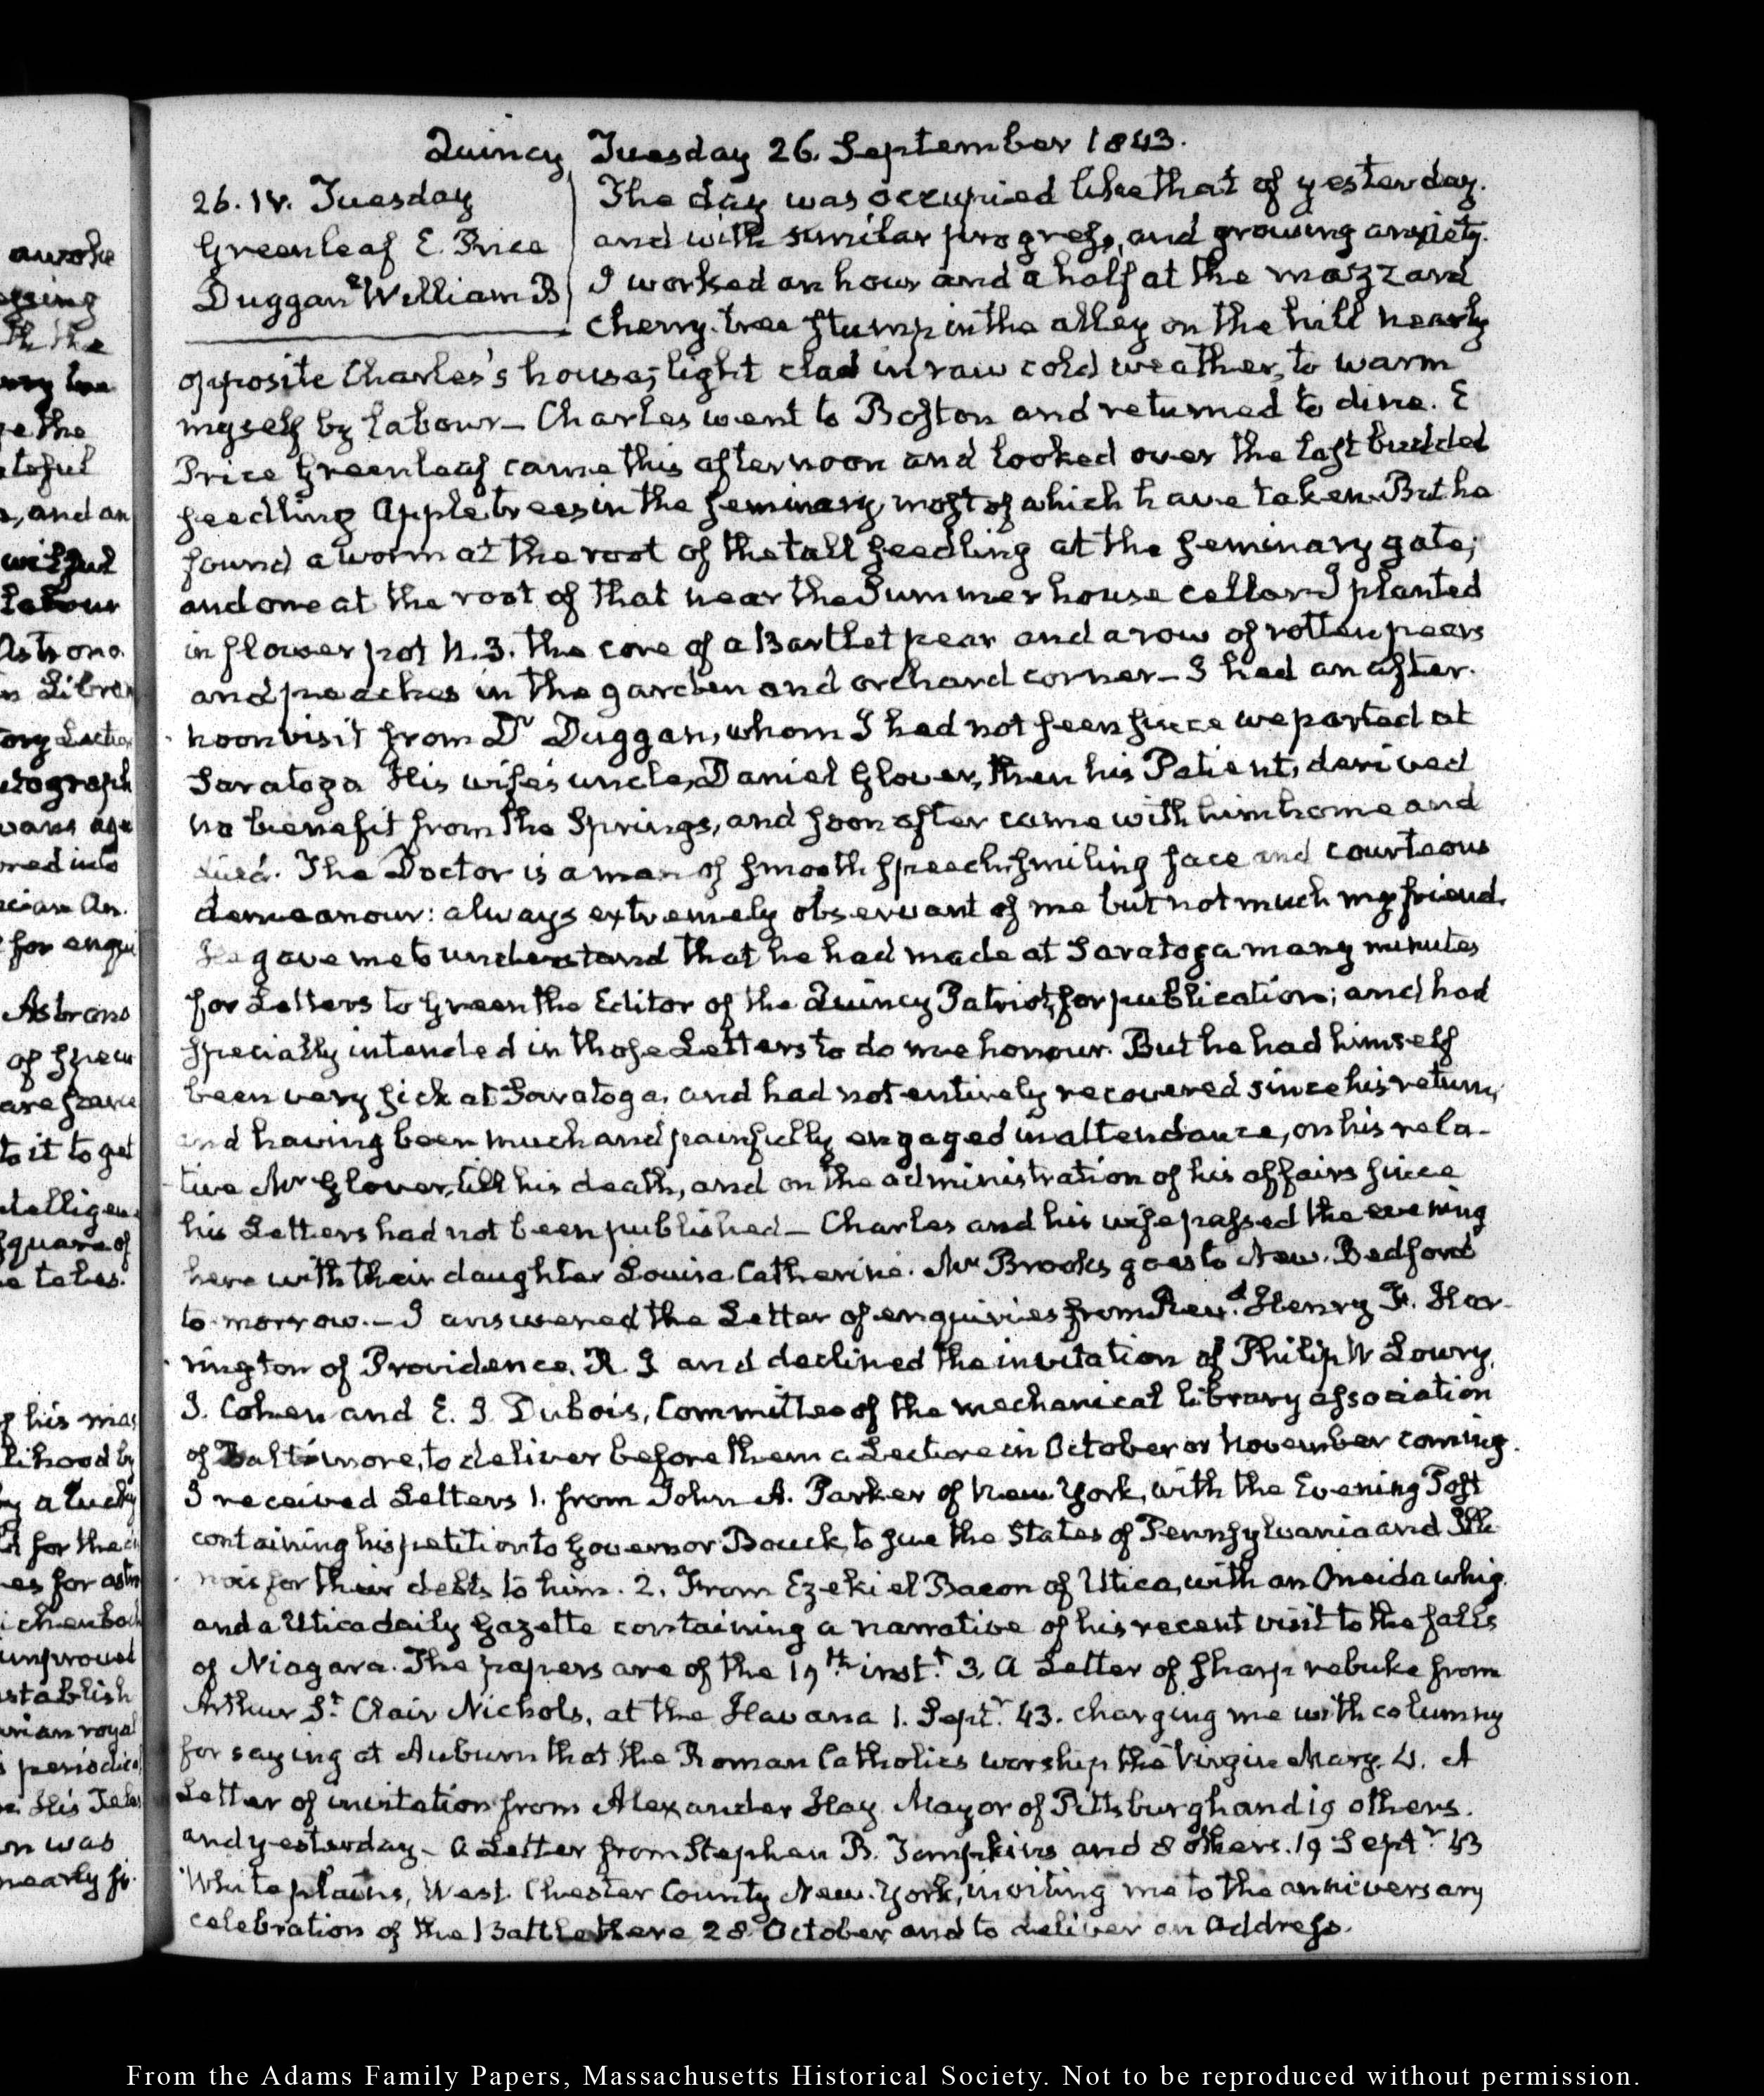 Quincy Tuesday 26. September 1843.
26. IV. Tuesday
Greenleaf E. Price
Duggan William B
The day was occupied like that of yesterday.
and with similar progress, and growing anxiety.
I worked an hour and a half at the mazzard
cherry-tree stump in the alley on the hill nearly
opposite Charles's house; light clad in raw cold weather, to warm
myself by labour— Charles went to Boston and returned to dine. E
Price Greenleaf came this afternoon and looked over the last budded
seedling Apple trees in the seminary, most of which have taken. But he
found a worm at the root of the tall seedling at the seminary gate;
and one at the root of that near the Summer house cellar— I planted
in flower pot N. 3. the core of a Bartlet pear and a row of rotten pears
and peaches in the garden and orchard corner— I had an after-
noon visit from Dr Duggan, whom I had not seen since we parted at
Saratoga His wife's uncle, Daniel Glover, then his Patient, derived
no benefit from the Springs, and soon after came with him home and
died. The Doctor is a man of smooth speech, smiling face and courteous
demeanour: always extremely observant of me but not much my friend.
He gave me to understand that he had made at Saratoga many minutes
for Letters to Green the Editor of the Quincy Patriot, for publication; and had
specially intended in those Letters to do me honour. But he had himself
been very sick at Saratoga, and had not entirely recovered since his return,
and having been much and painfully engaged in attendance, on his rela-
tive Mr Glover, till his death, and on the administration of his affairs since
his Letters had not been published— Charles and his wife passed the evening
here with their daughter Louisa Catherine. Mr Brooks goes to New-Bedford
to-morrow.— I answered the Letter of enquiries from Revd. Henry F. Har-
rington of Providence, R. I and declined the invitation of Philip W Lowry,
I. Cohen and E. I. Dubois, Committee of the mechanical library association
of Baltimore, to deliver before them a Lecture in October or November coming.
I received Letters 1. from John A. Parker of New York, with the Evening Post
containing his petition to Governor Bouck, to sue the States of Pennsylvania and Illi-
nois for their debts to him. 2. From Ezekiel Bacon of Utica, with an Oneida whig
and a Utica daily Gazette containing a narrative of his recent visit to the falls
of Niagara. The papers are of the 19th. inst.t 3. A Letter of sharp rebuke from
Arthur St. Clair Nichols, at the Havana 1. Septr. 43. charging me with calumny
for saying at Auburn that the Roman Catholics worship the Virgin Mary. 4. A
Letter of invitation from Alexander Hay Mayor of Pittsburgh and 19 others.
and yesterday— A Letter from Stephen B. Tompkins and 8 others. 19 Septr 43
White plains, West. Chester County New-York, inviting me to the anniversary
celebration of the Battle there 28 October and to deliver an Address.
From the Adams Family Papers, Massachusetts Historical Society. Not to be reproduced without permission.